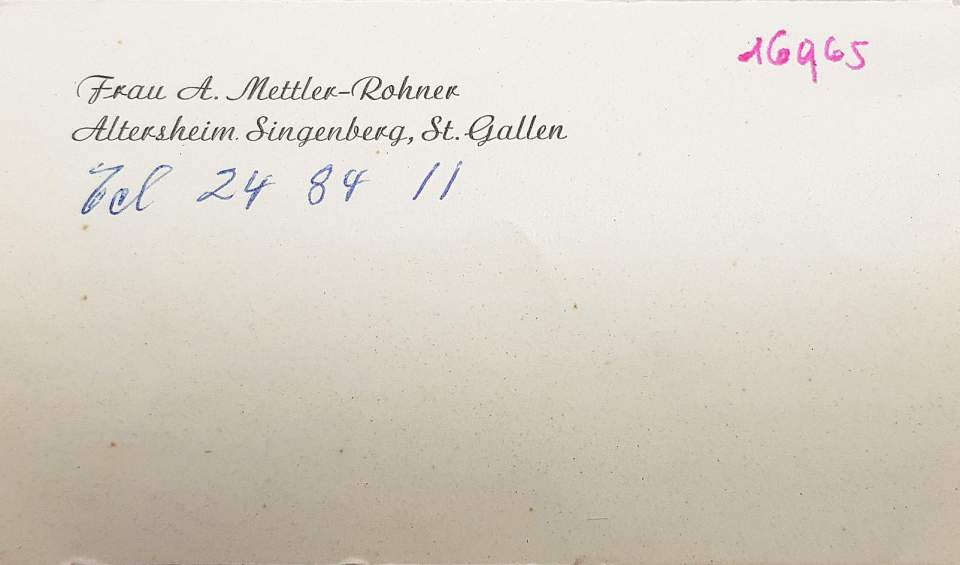 16965
Frau A. Mettler-Rohner
Altersheim Singenberg, St. Gallen
Tel 24 84 11